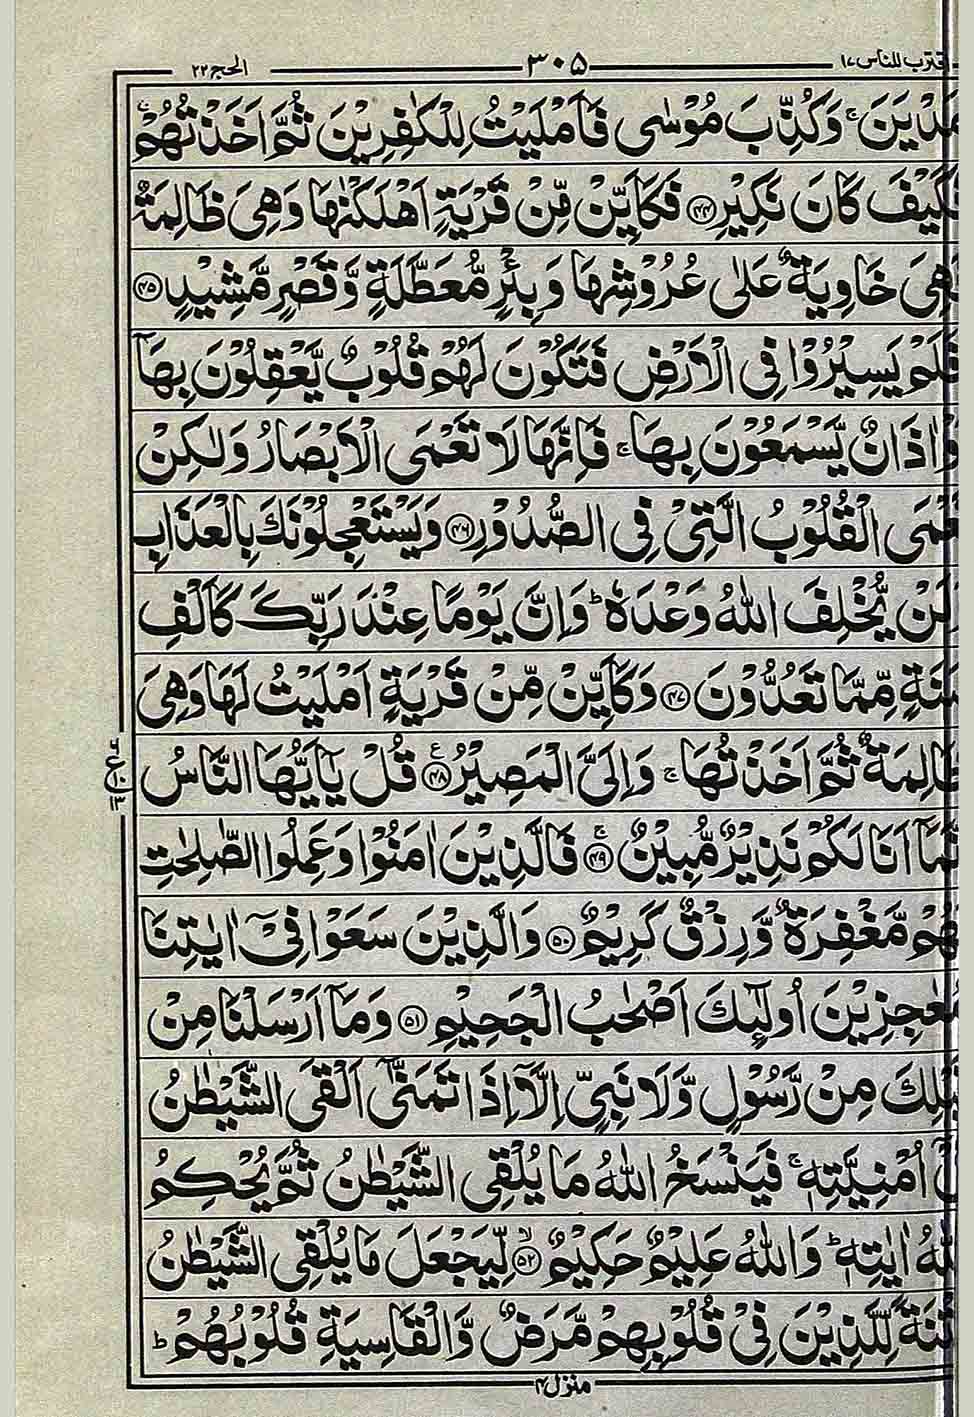 اقترب للناس ١٧ ٣٠٥ الحج ٢٢
مَدْيَنَ ۚ وَكُذِّبَ مُوْسٰى فَاَمْلَيْتُ لِلْكٰفِرِيْنَ ثُمَّ اَخَذْتُهُمْ ۚ
فَكَيْفَ كَانَ نَكِيْرِ ﴿۴۴﴾ فَكَاَيِّنْ مِّنْ قَرْيَةٍ اَهْلَكْنٰهَا وَهِىَ ظَالِمَةٌ
فَهِىَ خَاوِيَةٌ عَلٰى عُرُوْشِهَا وَبِئْرٍ مُّعَطَّلَةٍ وَّقَصْرٍ مَّشِيْدٍ ﴿۴۵﴾
اَفَلَمْ يَسِيْرُوْا فِى الْاَرْضِ فَتَكُوْنَ لَهُمْ قُلُوْبٌ يَّعْقِلُوْنَ بِهَاۤ
اَوْ اٰذَانٌ يَّسْمَعُوْنَ بِهَا ۚ فَاِنَّهَا لَا تَعْمَى الْاَبْصَارُ وَلٰكِنْ
تَعْمَى الْقُلُوْبُ الَّتِىْ فِى الصُّدُوْرِ ﴿۴۶﴾ وَيَسْتَعْجِلُوْنَكَ بِالْعَذَابِ
وَلَنْ يُّخْلِفَ اللّٰهُ وَعْدَهٗ ؕ وَاِنَّ يَوْمًا عِنْدَ رَبِّكَ كَاَلْفِ
سَنَةٍ مِّمَّا تَعُدُّوْنَ ﴿۴۷﴾ وَكَاَيِّنْ مِّنْ قَرْيَةٍ اَمْلَيْتُ لَهَا وَهِىَ
ظَالِمَةٌ ثُمَّ اَخَذْتُهَا ۚ وَاِلَىَّ الْمَصِيْرُ ﴿۴۸﴾ قُلْ يٰۤاَيُّهَا النَّاسُ
اِنَّمَاۤ اَنَا لَكُمْ نَذِيْرٌ مُّبِيْنٌ ۚ﴿۴۹﴾ فَالَّذِيْنَ اٰمَنُوْا وَعَمِلُوا الصّٰلِحٰتِ
لَهُمْ مَّغْفِرَةٌ وَّرِزْقٌ كَرِيْمٌ ﴿۵۰﴾ وَالَّذِيْنَ سَعَوْا فِىْۤ اٰيٰتِنَا
مُعٰجِزِيْنَ اُولٰٓئِكَ اَصْحٰبُ الْجَحِيْمِ ﴿۵۱﴾ وَمَاۤ اَرْسَلْنَا مِنْ
قَبْلِكَ مِنْ رَّسُوْلٍ وَّلَا نَبِىٍّ اِلَّاۤ اِذَا تَمَنّٰىۤ اَلْقَى الشَّيْطٰنُ
فِىْۤ اُمْنِيَّتِهٖ ۚ فَيَنْسَخُ اللّٰهُ مَا يُلْقِى الشَّيْطٰنُ ثُمَّ يُحْكِمُ
اللّٰهُ اٰيٰتِهٖ ؕ وَاللّٰهُ عَلِيْمٌ حَكِيْمٌ ۙ﴿۵۲﴾ لِّيَجْعَلَ مَا يُلْقِى الشَّيْطٰنُ
فِتْنَةً لِّلَّذِيْنَ فِىْ قُلُوْبِهِمْ مَّرَضٌ وَّالْقَاسِيَةِ قُلُوْبُهُمْ ؕ
منزل ۴